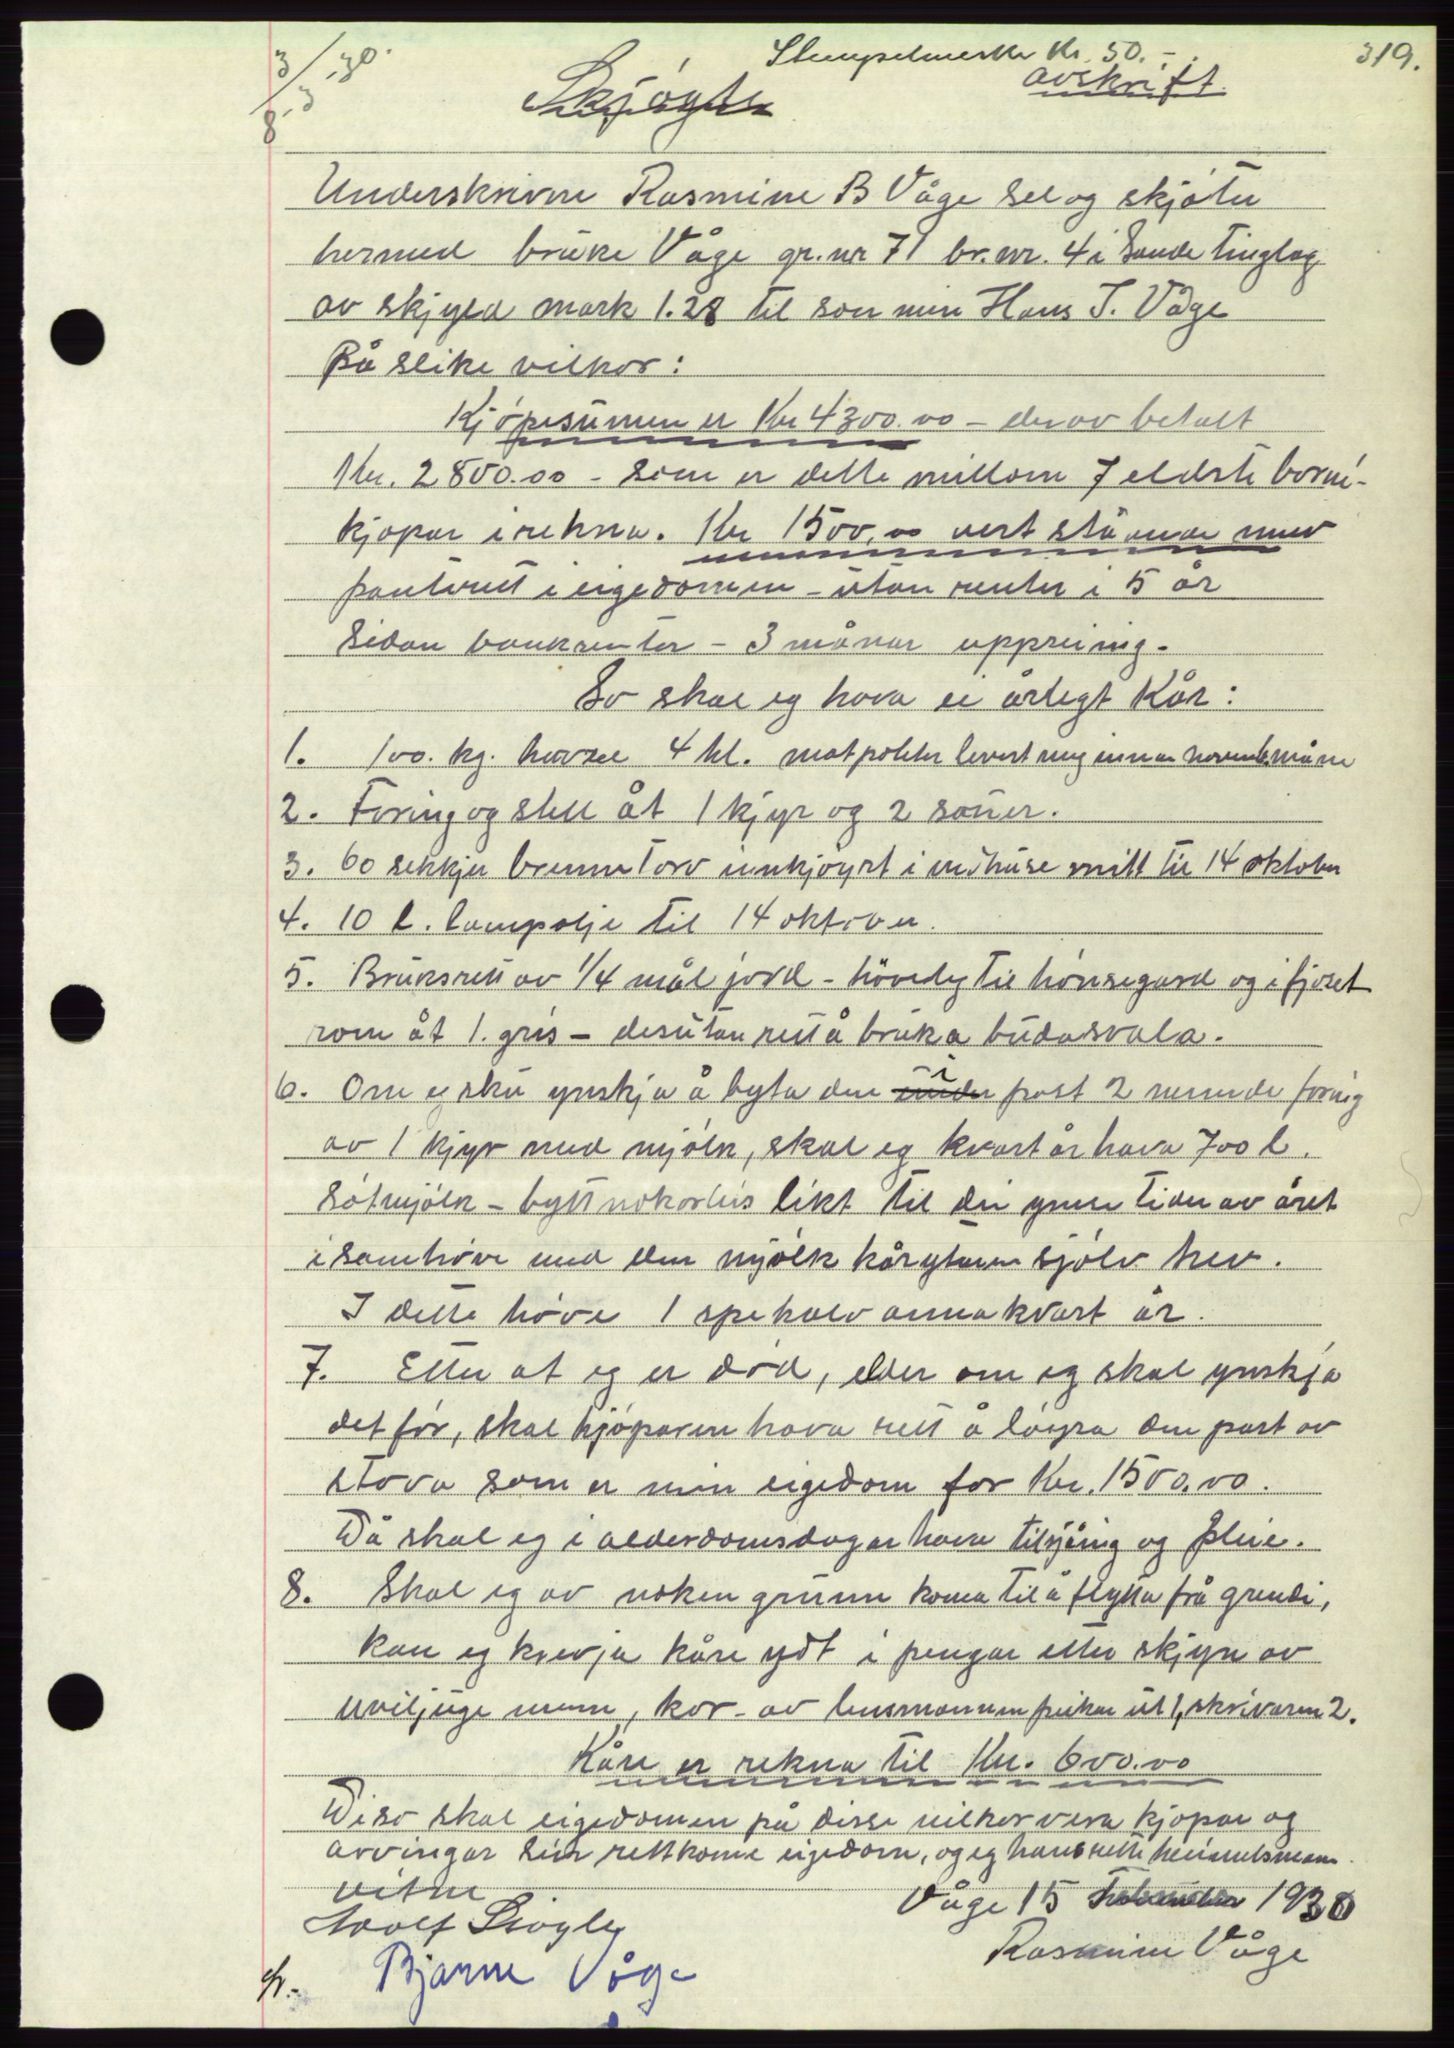 3/8-3 30.
Stempelmerke Kr. 50.-.
319.
avskrift.
Skjøyte
Underskrivne Rasmine B Våge sel og skjøter
hermed bruke Våge gr. nr 71 br. nr. 4 i Sande tinglag
av skjyld mark 1.28 til son min Hans J. Våge
På slike vilkor:
Kjøpesumen er Kr 4300.00 - derav betalt
Kr. 2800.00 - som er delte millom 7 eldste borni -
kjøpar i rekna. Kr 1500,00 vert ståande med
pantrett i eigedomen - utan renter i 5 år
Sidan bankrenter - 3 månar uppseiing -
So skal eg hava ei årlegt Kår:
1. 100. kg. havre 4 hl. matpoteter levert meg innan novemb. måne
2. Foring og stell åt 1 kjyr og 2 sauer.
3. 60 sekkjer brennetorv innkjøyrt i vedhuse mitt til 14 oktober
4. 10 l. lampolje til 14 oktober.
5. Bruksrett av 1/4 mål jord - høveleg til hønsegard og i fjoset
rom åt 1. gris - desutan rett å bruka budasvala.
6. Om eg sku ynskja å byta den i post 2 nemnde foring
av 1 kjyr med mjølk, skal eg kvart år hava 700 l.
søtmjølk - bytt nokorleis likt til dei ymse tider av året
i samhøve med den mjølk kårytaren sjølv hev.
I dette høve 1 spekalv annakvart år.
7. Etter at eg er død, elder om eg skal ynskja
det før, skal kjøparen hava rett å løysa den part av
stova som er min eigedom for Kr. 1500.00.
Då skal eg i alderdomsdagar hava tilsjåing og pleie.
8. Skal eg av noken grunn koma til å flytta frå grendi,
kan eg krevja kåre ydt i pengar etter skjyn av
uviljuge menn, kor - av lensmannen peikar ut 1, skrivaren 2.
Kåre er rekna til Kr. 600.00
Di so skal eigedomen på disse vilkor vera kjøpar og
arvingar sin rettkome eigedom, og eg hans rette heimelsmann.
Våge 15 1930
vitne
Rasmine Våge
Bjarne Våge